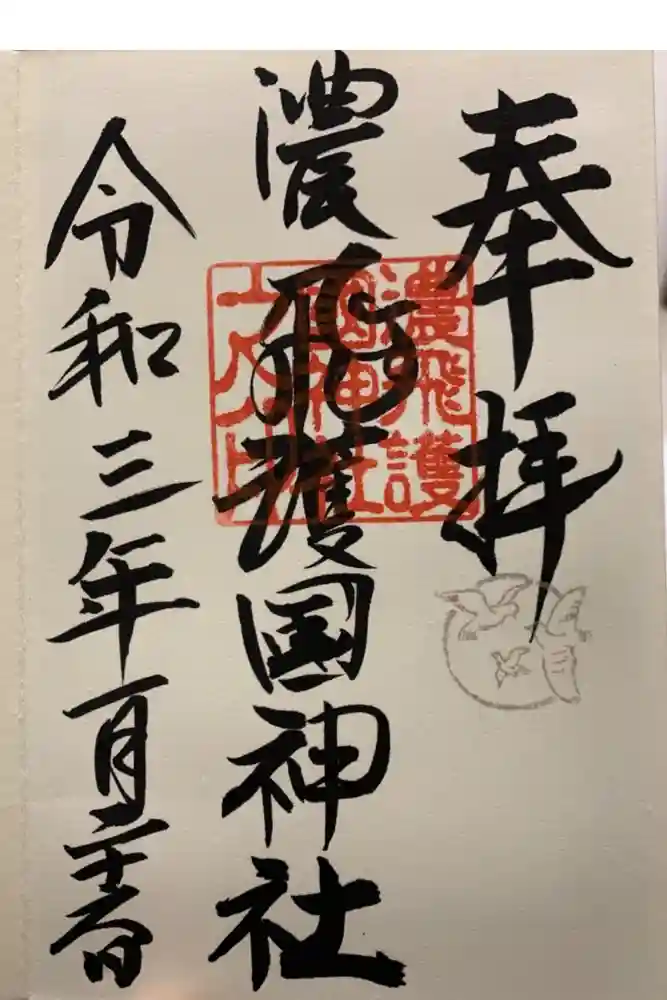 奉拝
濃飛護国神社
濃飛護
国神社
之印
令和三年一月